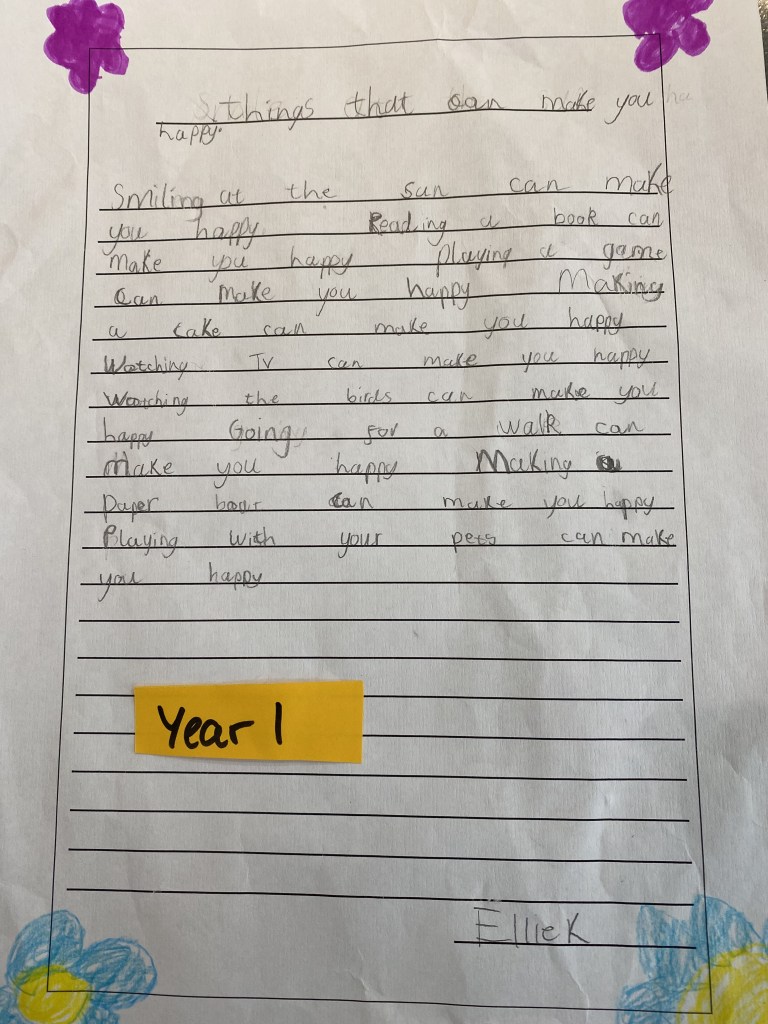 things that can make you
happy.
Smiling at the sun can make
you happy Reading a book can
make you happy playing a game
can make you happy Making
a cake can make you happy
Watching TV can make you happy
Watching the birds can make you
happy Going for a walk can
make you happy Making a
paper boat can make you happy
Playing with your pets can make
you happy
Year 1
Ellie K